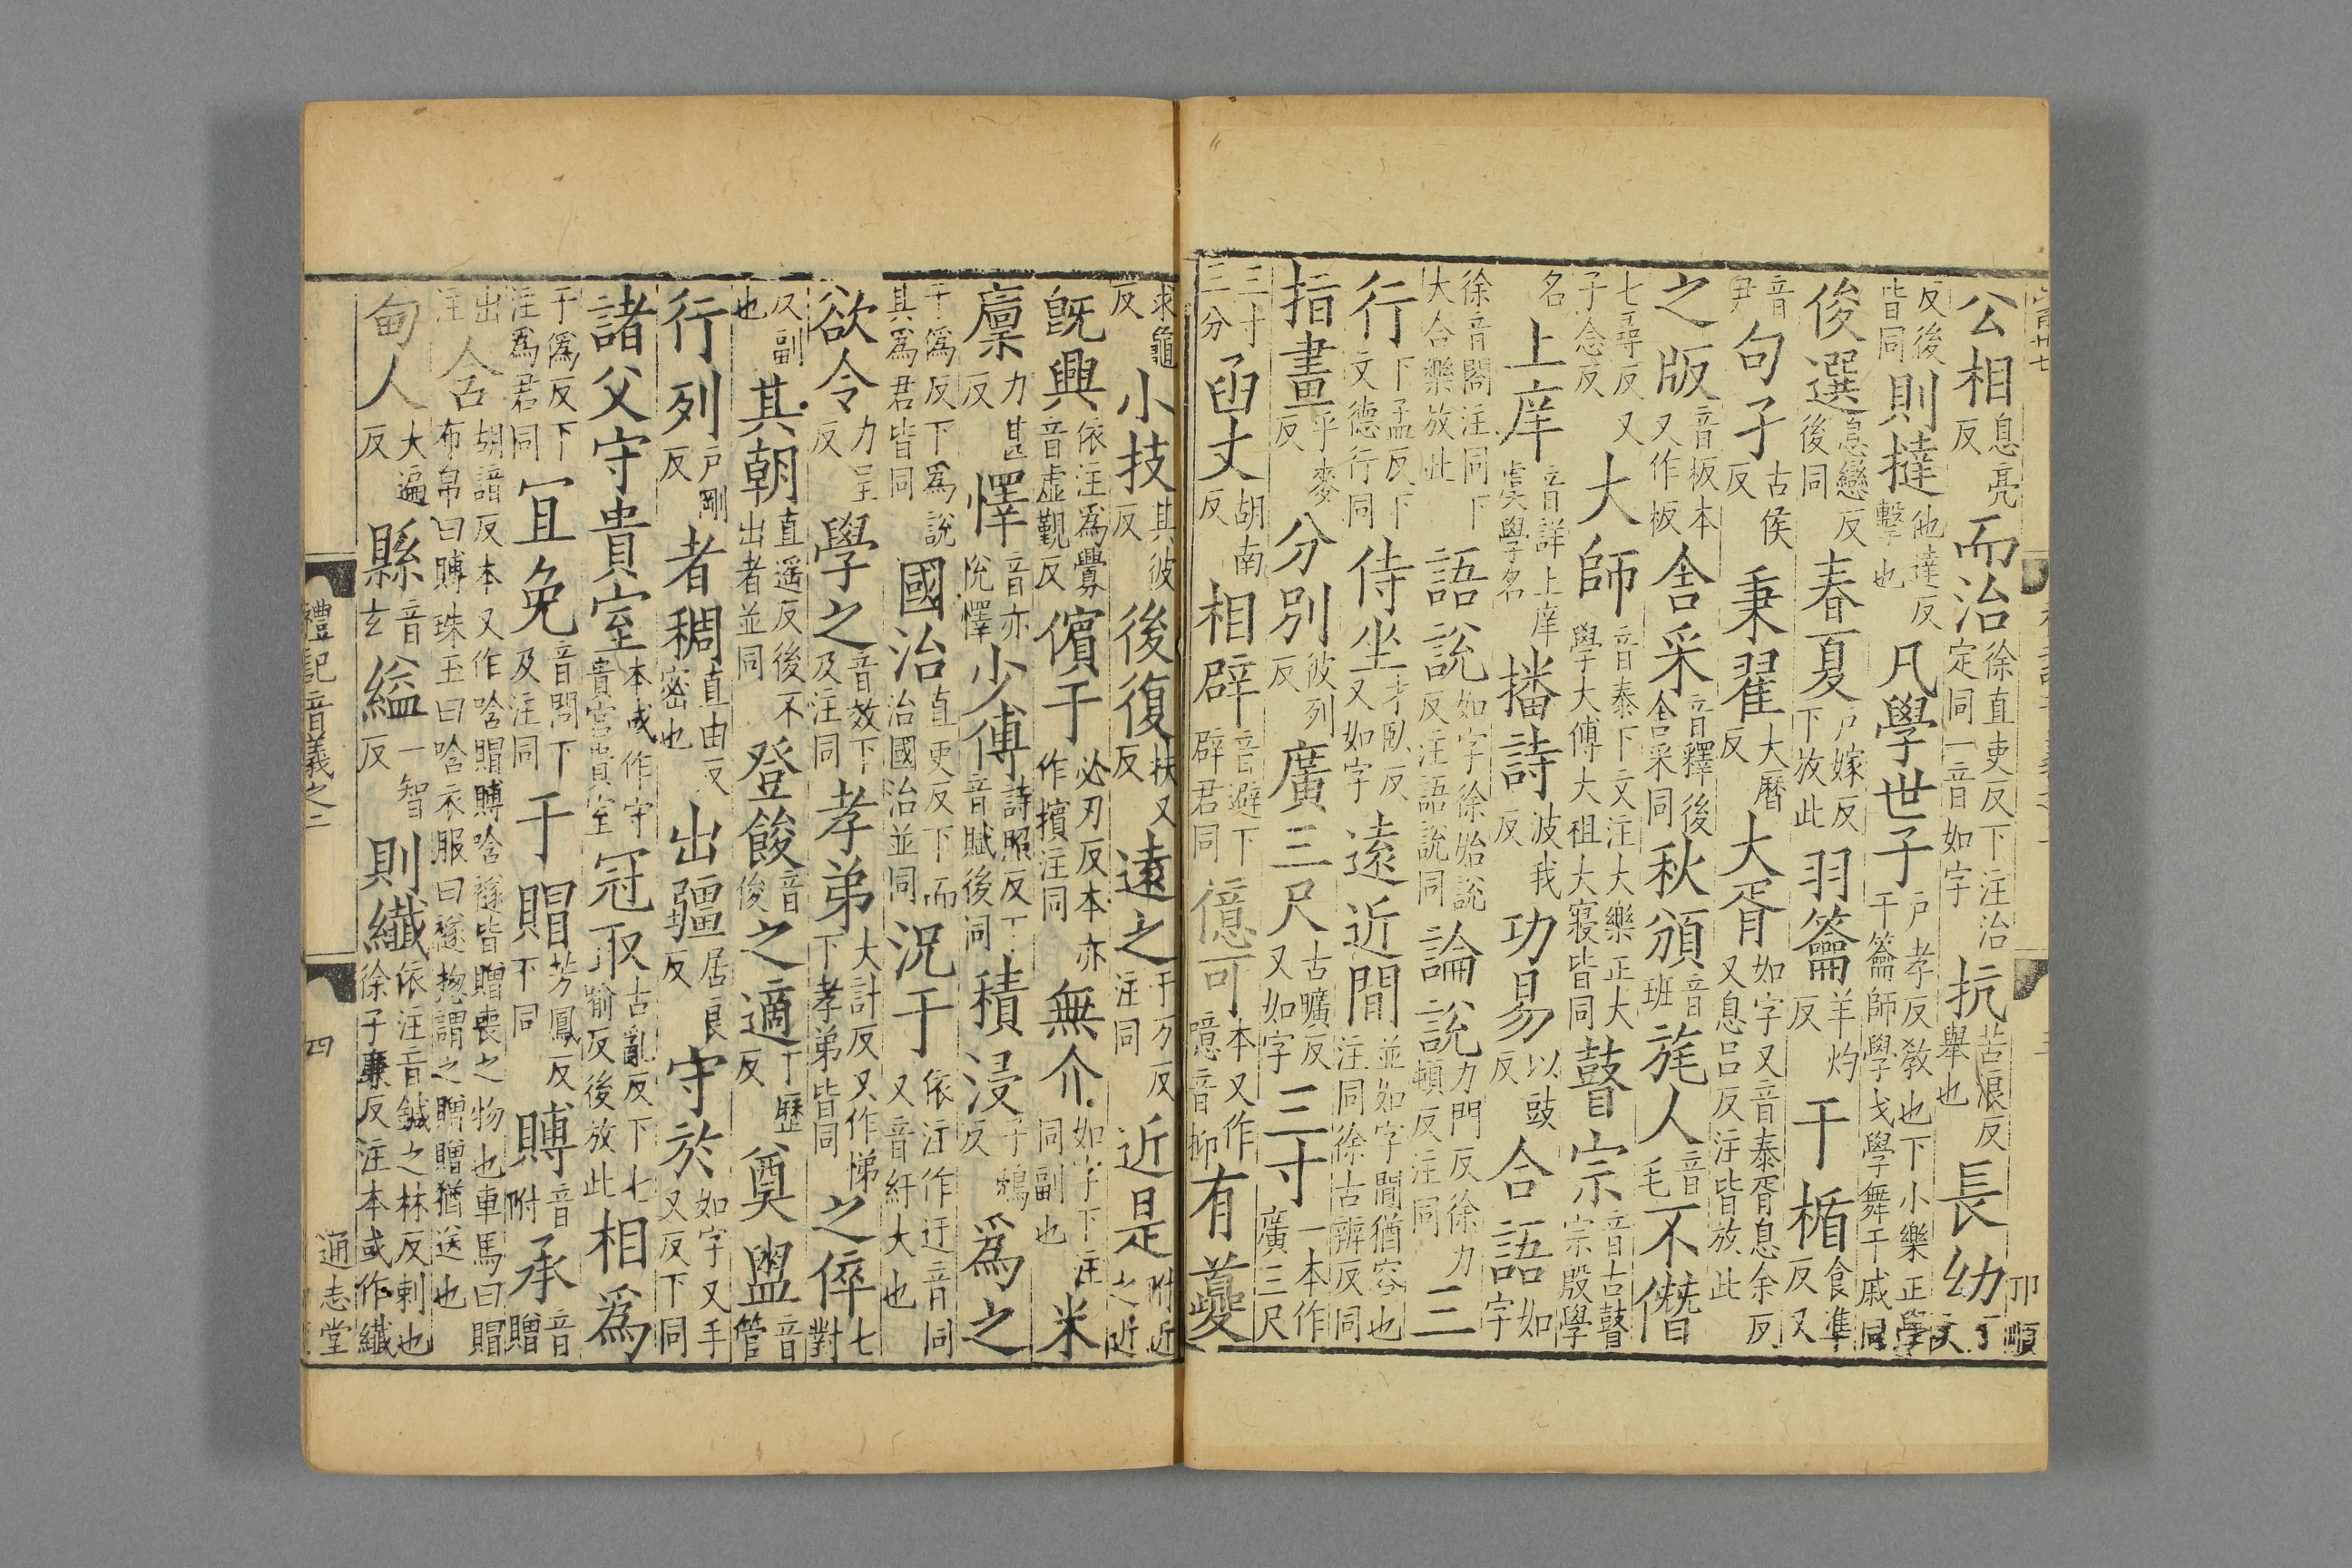 公相息亮反而治徐直吏反下注治定同一音如字抗苦浪反舉也長幼丁丈
反後皆同則撻他達反擊也凡學世子戶孝反教也下小樂正學干籥師學戈學舞干戚同
俊選息戀反後同春夏戶嫁反下放此羽籥羊灼反干楯食準反又
音尹句子古侯反秉翟大曆反大胥如字又音泰胥息余反又息呂反注皆放此
之版音板本又作板舍采音釋後舍采同秋頒音班旄人音毛不僭
七尋反又子念反大師音泰下文注大樂正大學大傅大祖大寢皆同瞽宗音古瞽宗殷學
名上庠音詳上庠虞學名播詩波我反功易以豉反合語如字
徐音閤注同下大合樂放此語說如字徐始說反注語說同論說力門反徐力頓反注同三
行下孟反下文德行同侍坐才臥反又如字遠近間並如字間猶容也注同徐古辨反同
指畫乎麥反分別彼列反廣三尺古曠反又如字三寸一本作廣三尺
三寸三分函丈胡南反相辟音避下辟君同億可本又作噫音抑有虁
求龜反小技其彼反後復扶又反遠之于万反注同近是附近之近
旣興依注爲釁音虛覲反儐于必刃反本亦作擯注同無介如字下注同副也米
廩力甚反懌音亦悅懌少傅詩照反下音賦後同積浸子鴆反爲之
于僞反下爲說其爲君皆同國治直吏反下而治國治並同況于依注作迂音同又音紆大也
欲令力呈反學之音效下及注同孝弟大計反又作悌下孝弟皆同之倅七對
反副也其朝直遥反後不出者並同登餕音俊之適丁歷反奠盥音管
行列戶剛反者稠直由反密也出疆居良反守於如字又手又反下同
諸父守貴室本或作守貴宮貴室冠取古亂反下七喻反後放此相爲
于僞反下注爲君同宜免音問下及注同于賵芳鳳反下同賻音附承音贈
出注含胡暗反本又作唅賵賻唅襚皆贈喪之物也車馬曰賵布帛曰賻珠玉曰唅衣服曰襚揔謂之贈贈猶送也
甸人大遍反縣音玄縊一智反則纖依注音鍼之林反刺也徐子廉反注本或作纖
禮記音義之二
四
通志堂